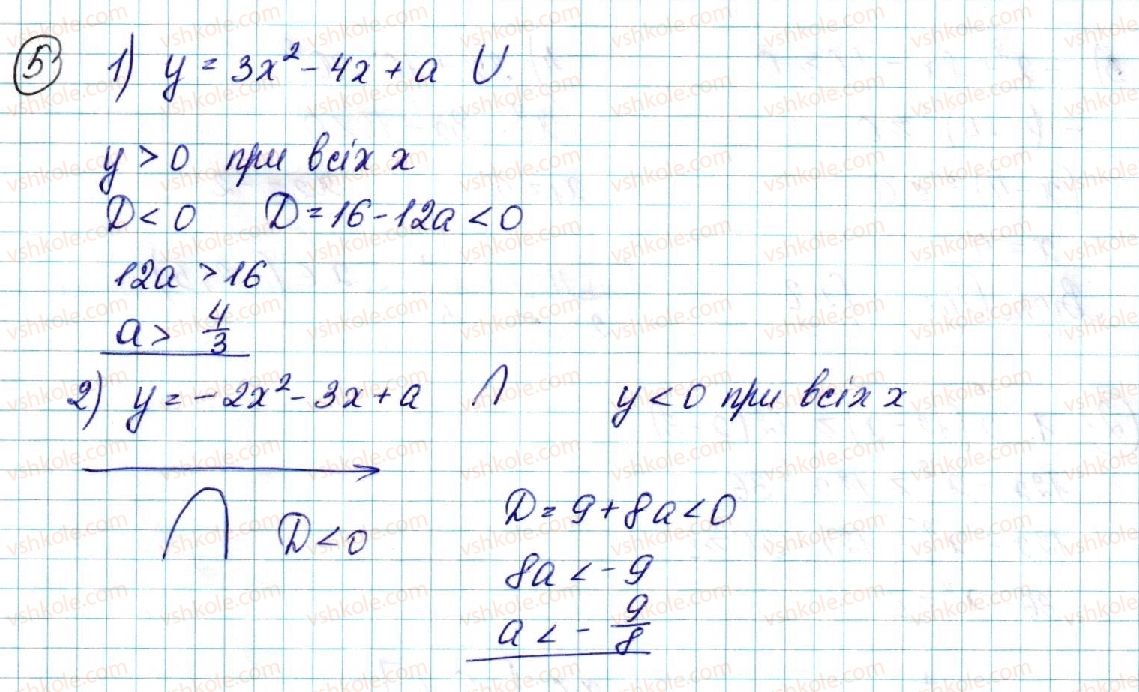 5 1) y = 3x² - 4x + a ∪
y > 0 при всіх x
D < 0 D = 16 - 12a < 0
12a > 16
a > 4/3
2) y = -2x² - 3x + a ∩ y < 0 при всіх x
D < 0
D = 9 + 8a < 0
8a < -9
a < - 9/8
vshkole.com